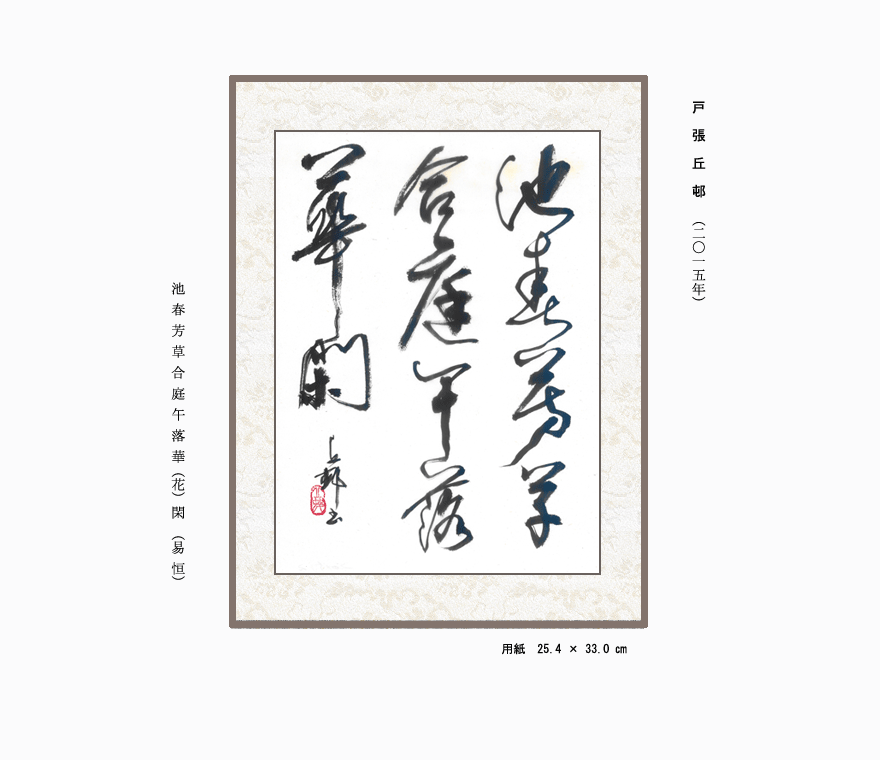 戸張丘邨 （二〇一五年）
池春芳草
合庭午落
華閑
丘邨書
池春芳草合庭午落華（花）閑 （易恒）
用紙 25.4 × 33.0 cm